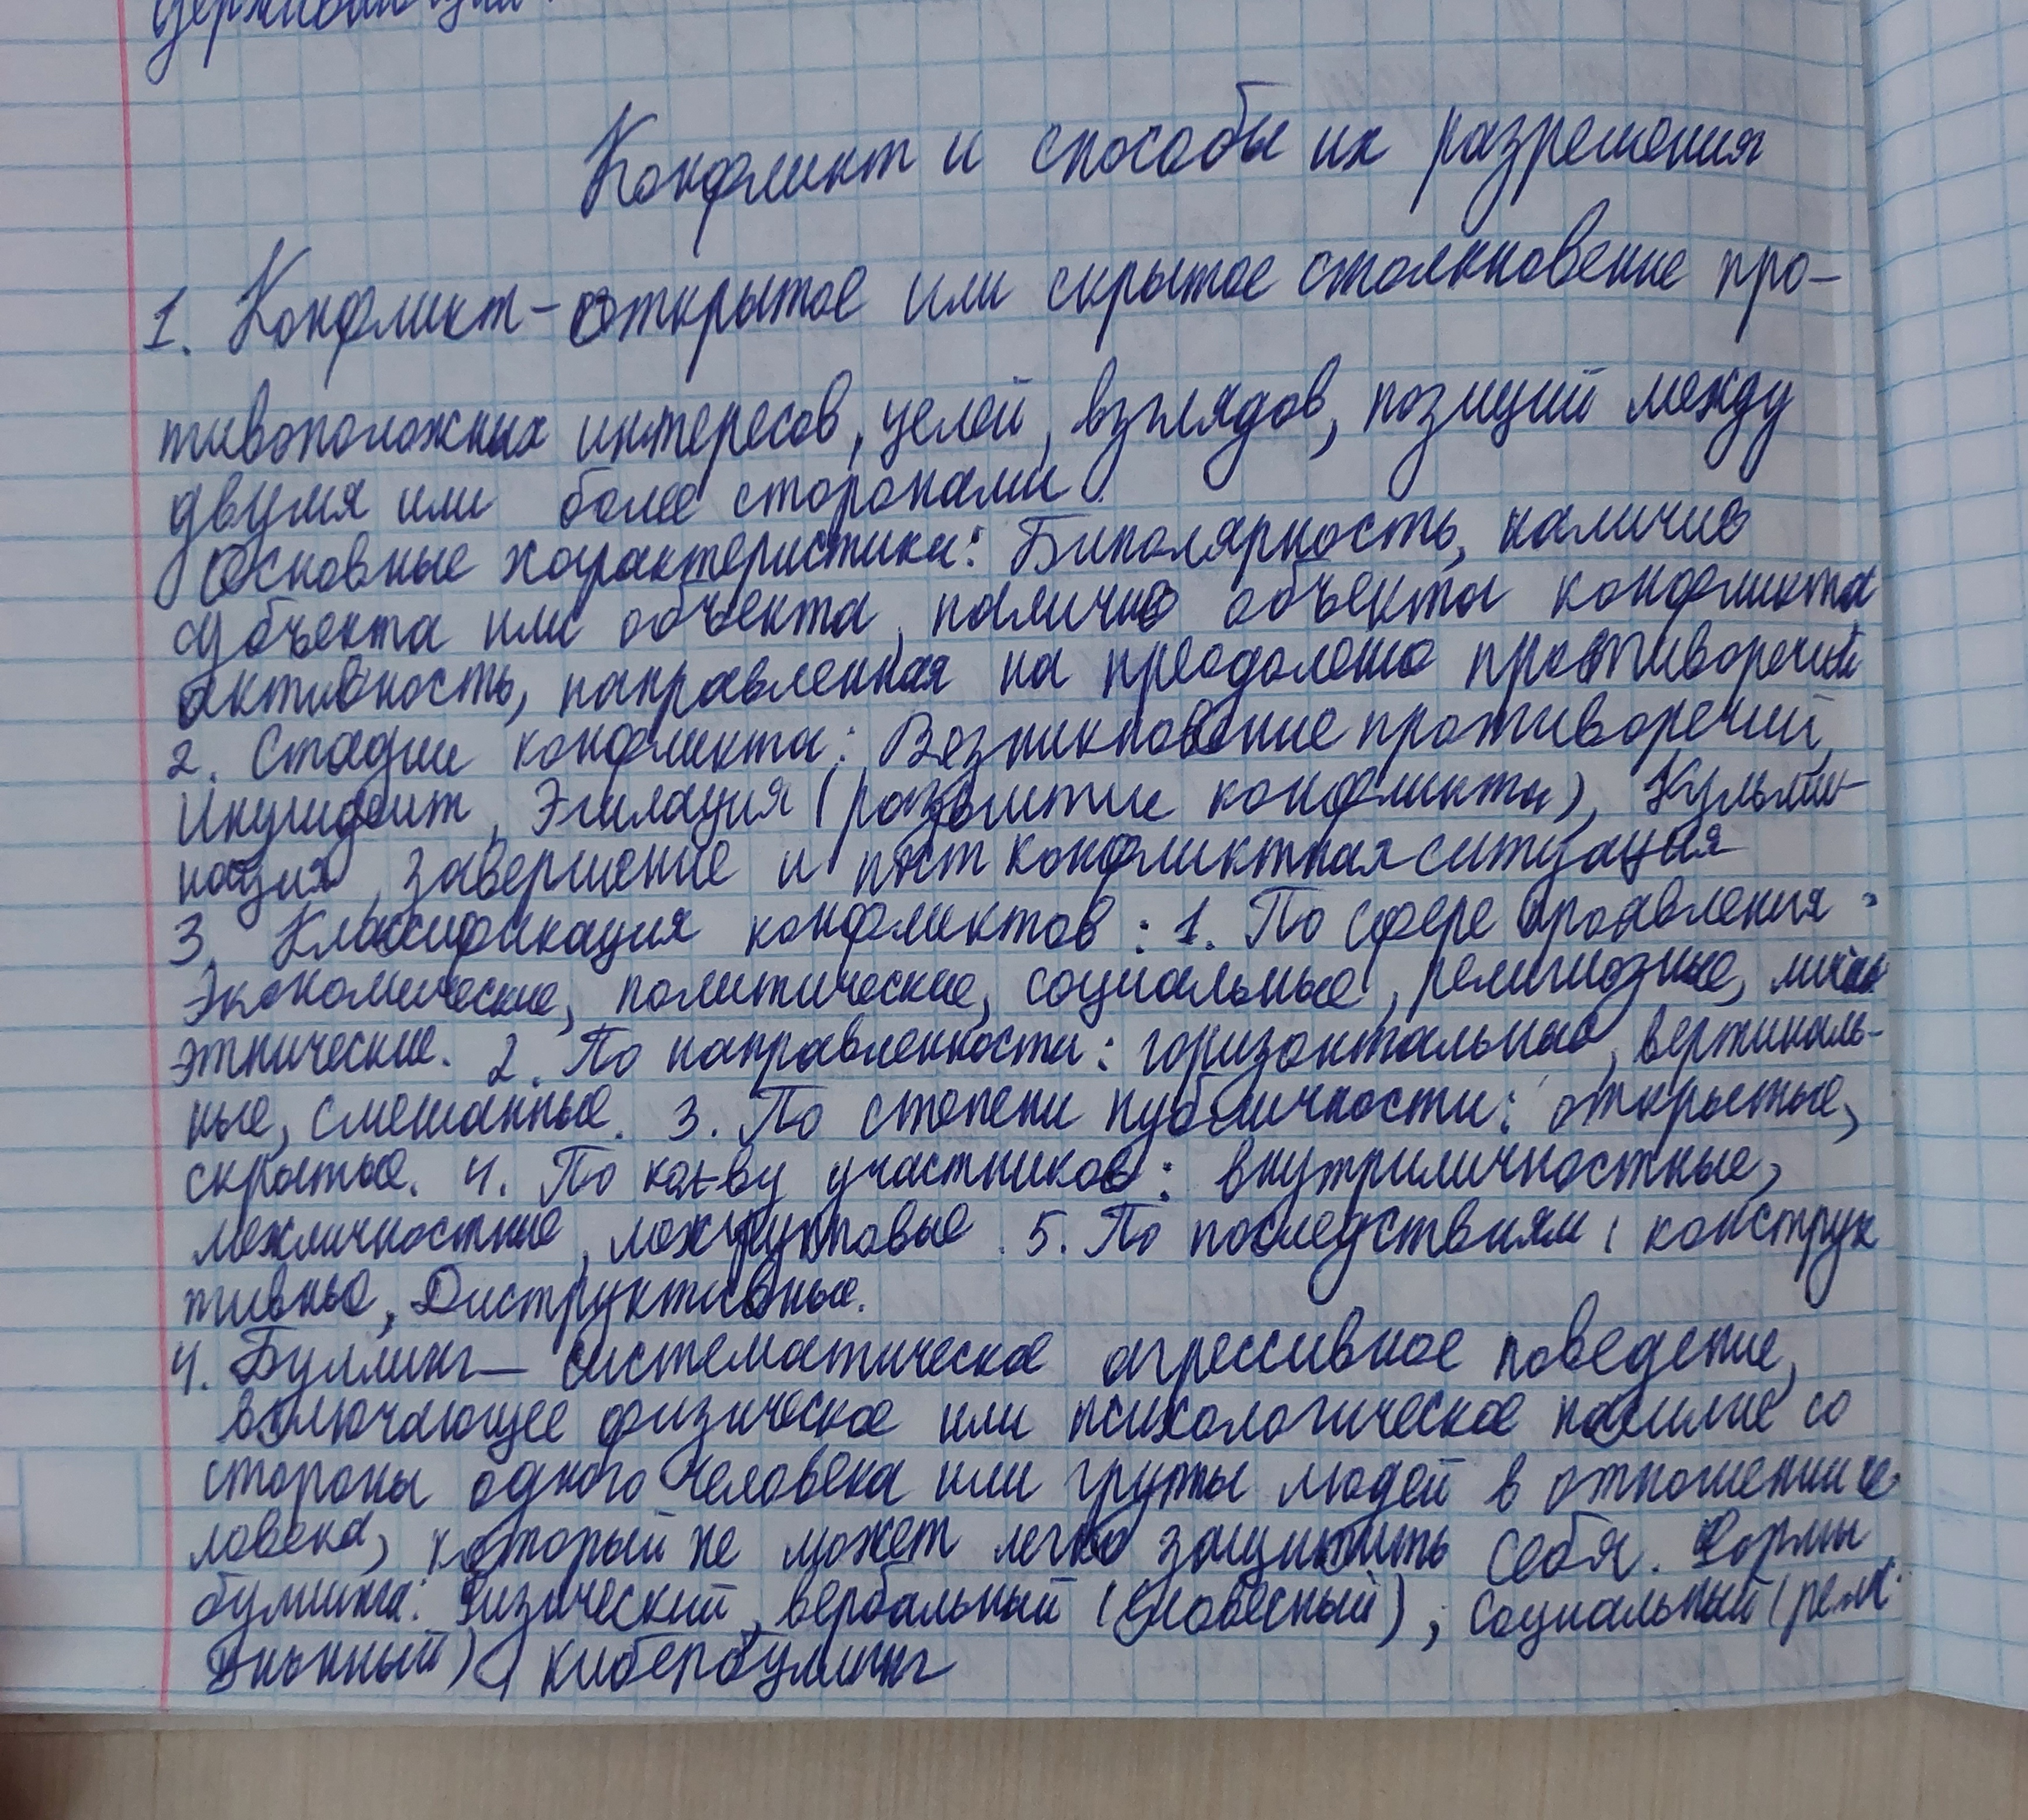 Конфликт и способы их разрешения
1. Конфликт – открытое или скрытое столкновение про-
тивоположных интересов, целей, взглядов, позиций между
двумя или более сторонами.
Основные характеристики: Биполярность, наличие
субъекта или объекта, наличие объекта конфликта,
активность, направленная на преодолено противоречий
2. Стадии конфликта: Возникновение противоречий,
Инцидент, Эгилация (развитие конфликта), Кульми-
нация, завершение и пост конфликтная ситуация
3. Классификация конфликтов: 1. По сфере проявления:
Экономические, политические, социальные, религиозные,
этнические. 2. По направленности: горизонтальные, вертикаль-
ные, смешанные. 3. По степени публичности: открытые,
скрытые. 4. По кол-ву участников: внутриличностные,
межличностные, межгрупповые. 5. По последствиям: конструк
тивные, Диструктивные.
4. Буллинг – систематическое агрессивное поведение,
включающее физическое или психологическое насилие со
стороны одного человека или группы людей в отношении че-
ловека, который не может легко защитить себя. Формы
буллинга: Физический, вербальный (словесный), социальный (реля-
ционный), кибербуллинг